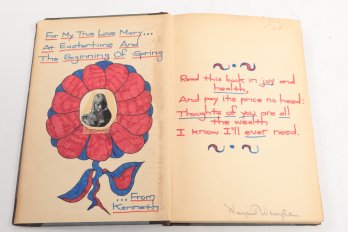 For My True Love Mary...
At Eastertime And
The Beginning Of Spring
...From
Kenneth
Read this book in joy and
health,
And pay its price no heed:
Thoughts of you are all
the wealth
I know I'll ever need.